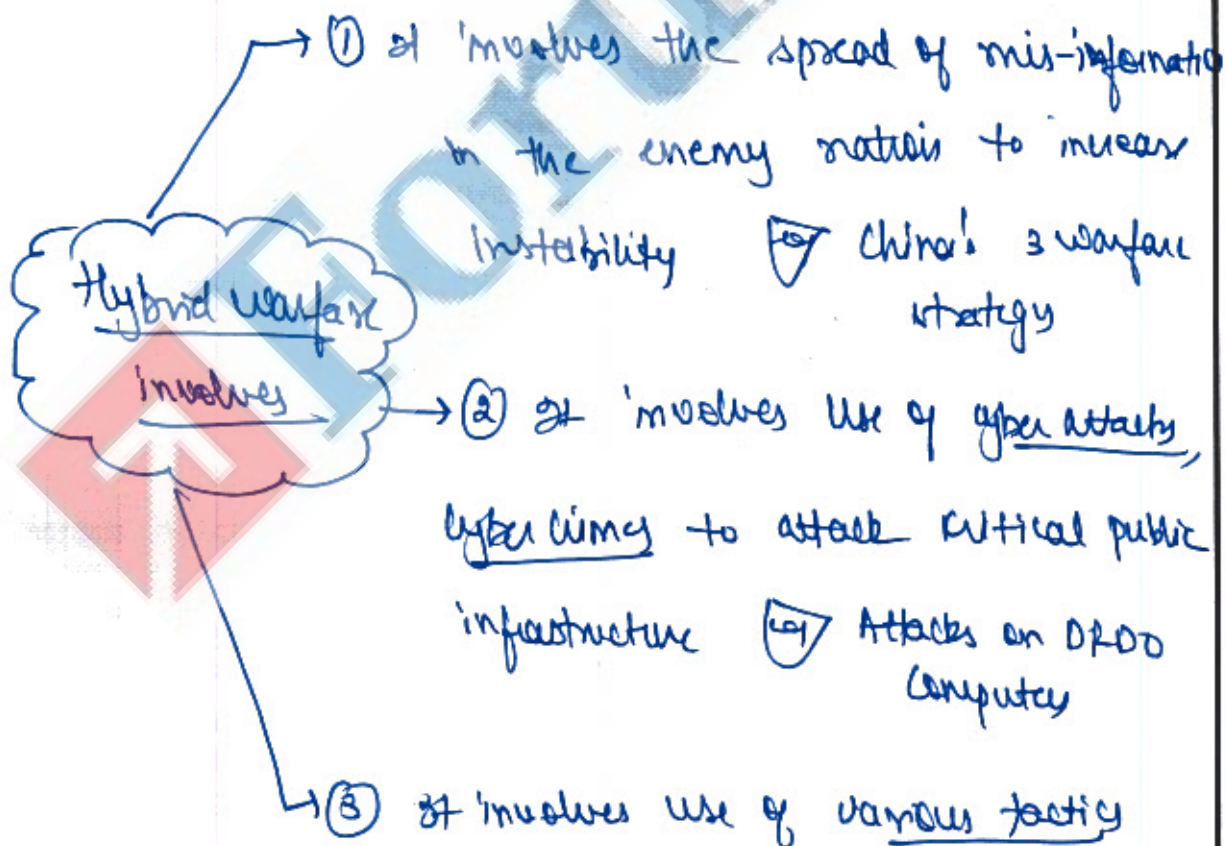 ① It involves the spread of mis-informatio
in the enemy nation to increase
instability eg China's 3 warfare
strategy
Hybrid warfare
involves
② It involves use of cyber attacks,
cyber crimes to attack critical public
infrastructure eg Attacks on DRDO
Computers
③ It involves use of various tactics
Foru